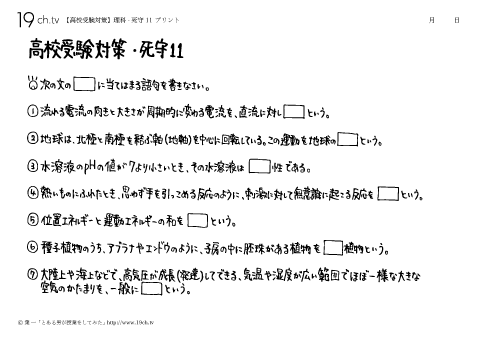 19 ch.tv 【高校受験対策】理科・死守11 プリント 月 日
高校受験対策・死守11
次の文の□に当てはまる語句を書きなさい。
① 流れる電流の向きと大きさが周期的に変わる電流を、直流に対し□という。
② 地球は、北極と南極を結ぶ軸(地軸)を中心に回転している。この運動を地球の□という。
③ 水溶液のpHの値が7より小さいとき、その水溶液は□性である。
④ 熱いものにふれたとき、思わず手を引っこめる反応のように、刺激に対して無意識に起こる反応を□という。
⑤ 位置エネルギーと運動エネルギーの和を□という。
⑥ 種子植物のうち、アブラナやエンドウのように、子房の中に胚珠がある植物を□植物という。
⑦ 大陸上や海上などで、高気圧が成長(発達)してできる、気温や湿度が広い範囲でほぼ一様な大きな
空気のかたまりを、一般に□という。
© 葉一「とある男が授業をしてみた」http://www.19ch.tv